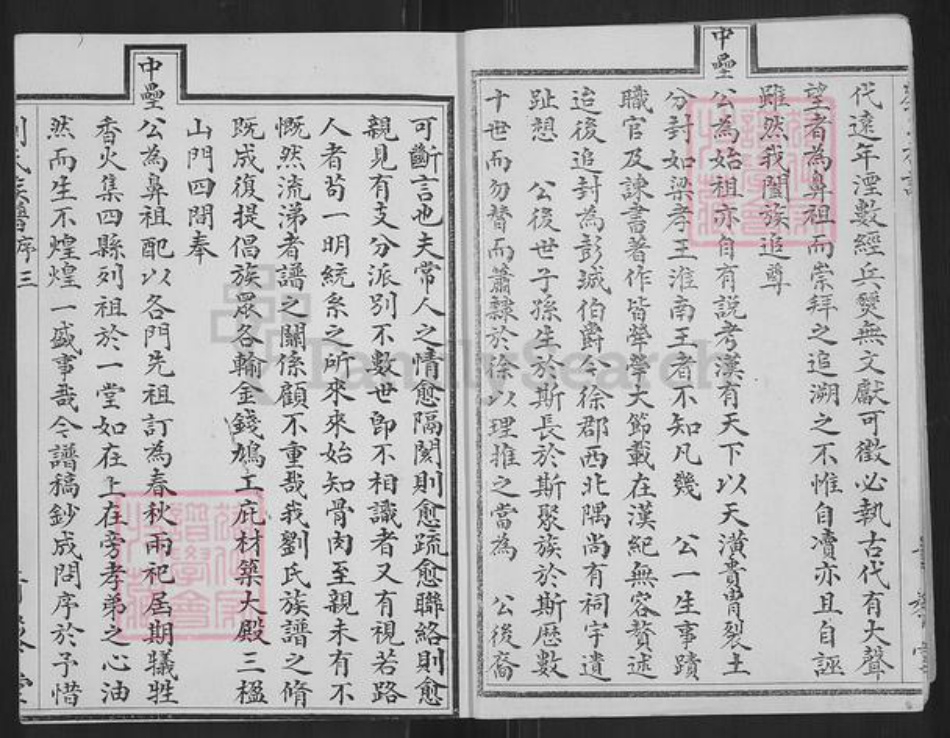 代遠年湮數經兵燹無文獻可徵必執古代有大聲
望者為鼻祖而崇拜之追溯之不惟自瀆亦且自誣
雖然我闔族追尊
中壘
公為始祖亦自有說考漢有天下以天潢貴胄裂土
分封如梁孝王淮南王者不知凡幾 公一生事蹟
職官及諫書著作皆犖犖大節載在漢紀無容贅述
迨後追封為彭城伯爵今徐郡西北隅尚有祠宇遺
趾想 公後世子孫生於斯長於斯聚族於斯歷數
十世而勿替而蕭隸於徐以理推之當為 公後裔
可斷言也夫常人之情愈隔閡則愈疏愈聯絡則愈
親見有支分派別不數世即不相識者又有視若路
人者苟一明統系之所來來始知骨肉至親未有不
慨然流涕者譜之關係顧不重哉我劉氏族譜之脩
既成復提倡族眾各輸金錢鳩工庇材築大殿三楹
山門四閤奉
中壘
公為鼻祖配以各門先祖訂為春秋兩祀屆期犧牲
香火集四縣列祖於一堂如在上在旁孝弟之心油
然而生不煌煌一盛事哉今譜稿鈔成問序於予惜
劉氏族譜序三
FamilySearch